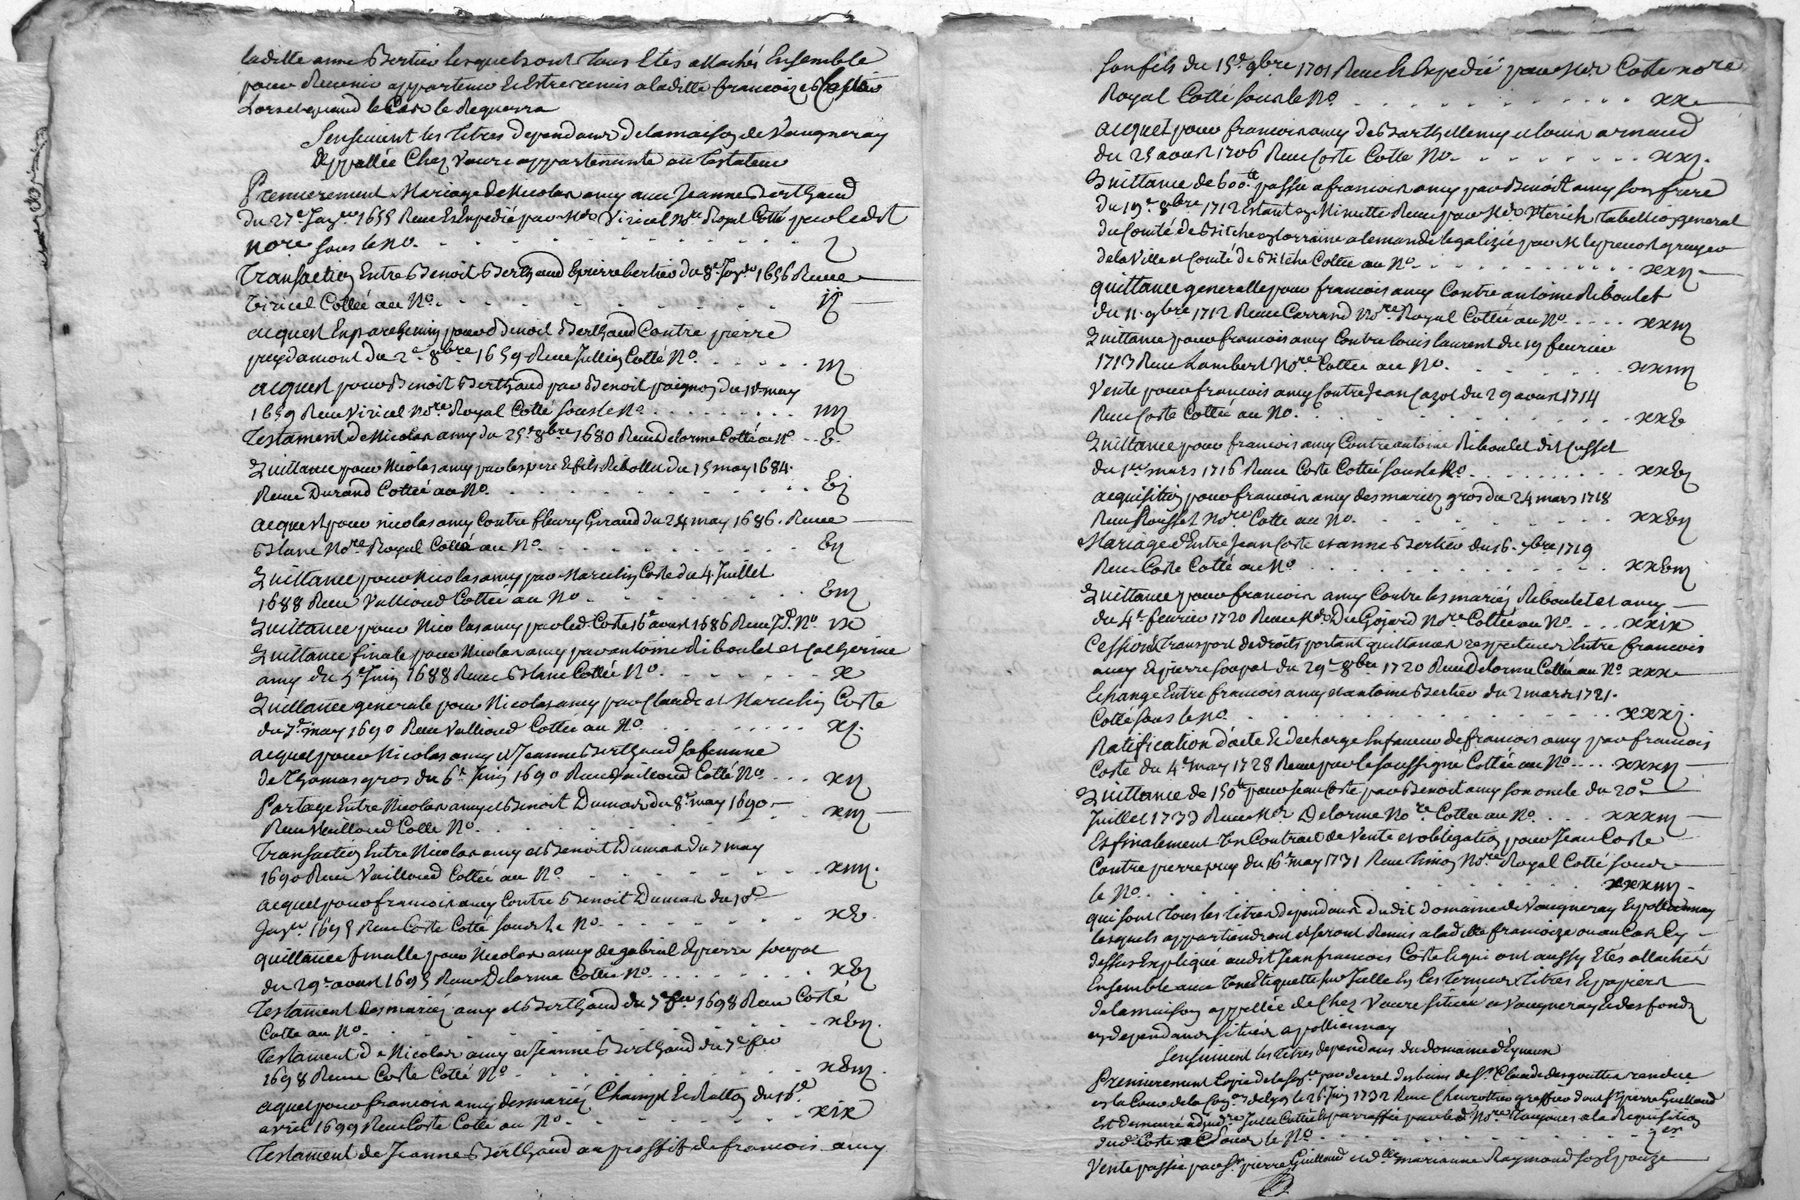 laditte anne Bertier lesquels ont tous Etés attachés Ensemble
pour Revenir appartenir Et Estre remis a laditte francoize
Lors et quand le Cas le Requerra
Sensuivent les titres dependans de la maison de Vaugneray
appellée Chez Vaure appartenante au testateur
Premierement Mariage de Nicolas amy avec Jeanne Berthaud
du 27e Janv 1655 Receu Et Expedié par Me Viricel Nre Royal Cotté par ledit
Nore sous le No.
Transaction Entre Benoit Berthaud Et pierre bertier du 8e Janv 1656 Receue
Viricel Cottée au No. ij
acquest En parchemin pour Benoit Berthaud Contre pierre
puydamont du 2e 8bre 1659 Receu Jullien Cotté No. iij
acquest pour Benoit Berthaud par Benoit paignon du may
1659 Receu Viricel Nore Royal Cotté sous le No iiij
Testament de Nicolas amy du 25e 8bre 1680 Receu Delorme Cotté au No - v
Quittance pour Nicolas amy par les pere Et fils Ribollet du 15 may 1684
Receue Durand Cottée au No. vj
acquest pour nicolas amy Contre fleury Giraud du 28 may 1686. Receu
Blanc Nore Royal Cotté au No. vij
Quittance pour Nicolas amy par Marcelin Coste du 4 Juillet
1688 Receue Vallioud Cottée au No viij
Quittance pour Nicolas amy par led Coste 16e avril 1686 Receue J.D. No. ix
Quittance finale pour Nicolas amy par antoine Riboulet et Catherine
amy du 5e Juin 1688 Receue Blanc Cottée No. x
Quittance generale pour Nicolas amy par Claude et Marcelin Coste
du 7e may 1690 Receue Vallioud Cottée au No xj.
acquet pour Nicolas amy et Jeanne Berthaud sa femme
de Thomas gros du 6e Juin 1690 Receu Vailloud Cotté No. xij
Partage Entre Nicolas amy et Benoit Dumas du 8e may 1690
Receu Vailloud Cotté No. xiij
Transaction Entre Nicolas amy et Benoit Dumas du 7 may
1690 Receu Vailloud Cottée au No xiiij.
acquet pour francois amy Contre Benoit Dumas du
Janv 1695 Receu Coste Cotté sous le No. xv.
quittance finalle pour Nicolas amy de gabriel Et pierre
du 29e avril 1695 Receue Delorme Cottée No. xvj
Testament des mariés amy et Berthaud du 7e fev 1698 Receu Coste
Cotté au No. xvij.
Testament de Nicolas amy et Jeanne Berthaud du 7e fev
1698 Receu Coste Cotté No xviij.
aquet pour francois amy des mariés Et Ratton du 16e
avril 1699 Receu Coste Cotté au No. xix
Testament de Jeanne Berthaud au proffit de francois amy
son fils du 15e 9bre 1701 Receu Et Expedié par Me Coste nore
Royal Cotté sous le No. xx
acquet pour francois amy de Barthellemy et louis arnaud
du 25 aoust 1706 Receu Coste Cotté No. xxj.
Quittance de 600 passée a francois amy par Benoit amy son frere
du 19e 8bre 1712 Estant En Minutte Receue par Me tabellion general
du Comté de Bitche En lorraine alemande legalizée par
de la Ville et Comté de Bitche Cottée au No. xxij
quittance generalle pour francois amy Contre antoine Riboulet
du 11. 9bre 1712 Receue Nore Royal Cottée au No. xxiij
Quittance pour francois amy Contre louis laurent du 19 fevrier
1713 Receue Lambert Nore Cottée au No. xxiiij
Vente pour francois amy Contre Jean Cazot du 29 avril 1714
Receue Coste Cottée au No. xxv
Quittance pour francois amy Contre antoine Riboulet dit Cusset
du 1er mars 1716 Receue Coste Cottée sous le No xxvj
acquisition pour francois amy des mariez gros du 24 mars 1718
Receue Rousset Nore Cotté au No. xxvij
Mariage d'Entre Jean Coste et anne Bertier du 16. 7bre 1719
Receu Coste Cotté au No xxviij
Quittance pour francois amy Contre les mariés Riboulet et amy
du 4e fevrier 1720 Receue Me Du Gojard Nore Cottée au No. xxix
Cession Et Transport de droits portant quittances respectives Entre francois
amy Et pierre du 29e 8bre 1720 Receue Delorme Cottée au No. xxx
Echange Entre francois amy et antoine Bertier du 2 mars 1721.
Cotté sous le No xxxj.
Ratification d'acte Et decharge En faveur de francois amy par francois
Coste du 4e may 1728 Receue par le soussigné Cottée au No xxxij
Quittance de 150 pour Jean Coste par Benoit amy son oncle du 20e
Juillet 1733 Receue Me Delorme Nore Cottée au No. xxxiij
Et finalement Un Contract de Vente et obligation pour Jean Coste
Contre pierre puy du 16e may 1731 Receu Simon Nore Royal Cotté sous
le No. xxxiiij
qui sont tous les titres dependans dudit domaine de Vaugneray Et pollionnay
lesquels appartiendront et seront Remis a laditte francoize ou au Cas Cy
dessus Expliqué audit Jean francois Coste Et qui ont aussy Etés attachés
Ensemble avec Une Etiquette sur Jcelle Es termes titres Et papiers
de la maison appellée de Chez Vaure située a Vaugneray Et des fonds
en dependans situés a pollionnay
Sensuivent les titres dependans du domaine d'Eyveux
Premierement Copie de la par decret des biens de Sr Claude desgouttes rendue
en la Cour de la de Lyon le 26 Juin 1732 Receue greffier dont Sr pierre Guilloud
Est demeuré adjudre Jcelle Cottée Et parraffée par led Nore toujours a la Requisition
dudt Coste le No 1er
Vente passée par Sr pierre Guilloud et dlle marianne Raymond son Epouze